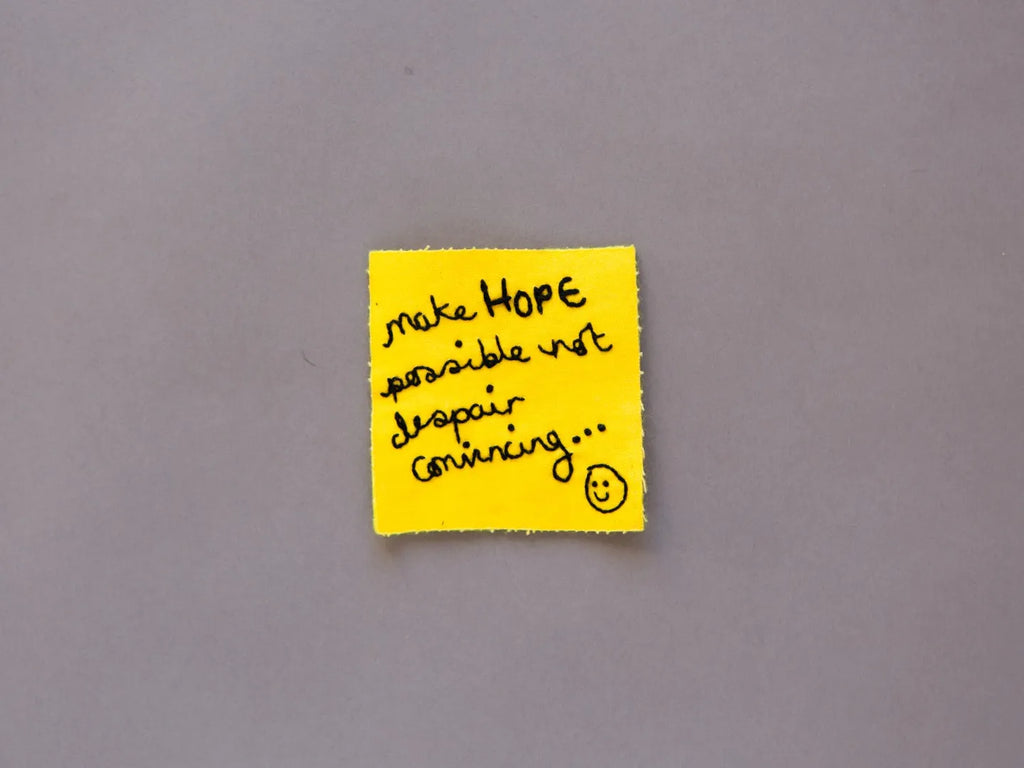 make HOPE
possible not
despair
convincing...